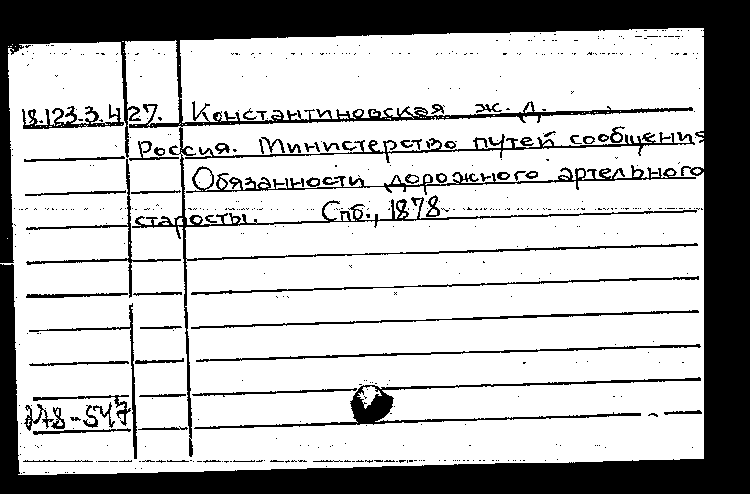 18.123.3.427. Константиновская ж. д.
Россия. Министерство путей сообщения
Обязанности дорожного артельного
старосты. Спб., 1878
278-547